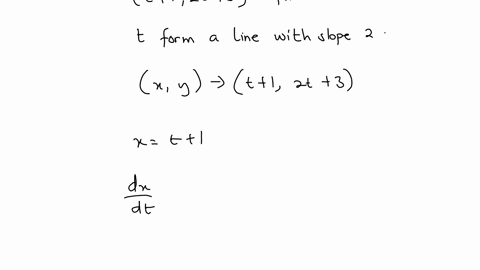 t form a line with slope 2.
(x, y) → (t+1, 2t+3)
x = t+1
dx
dt